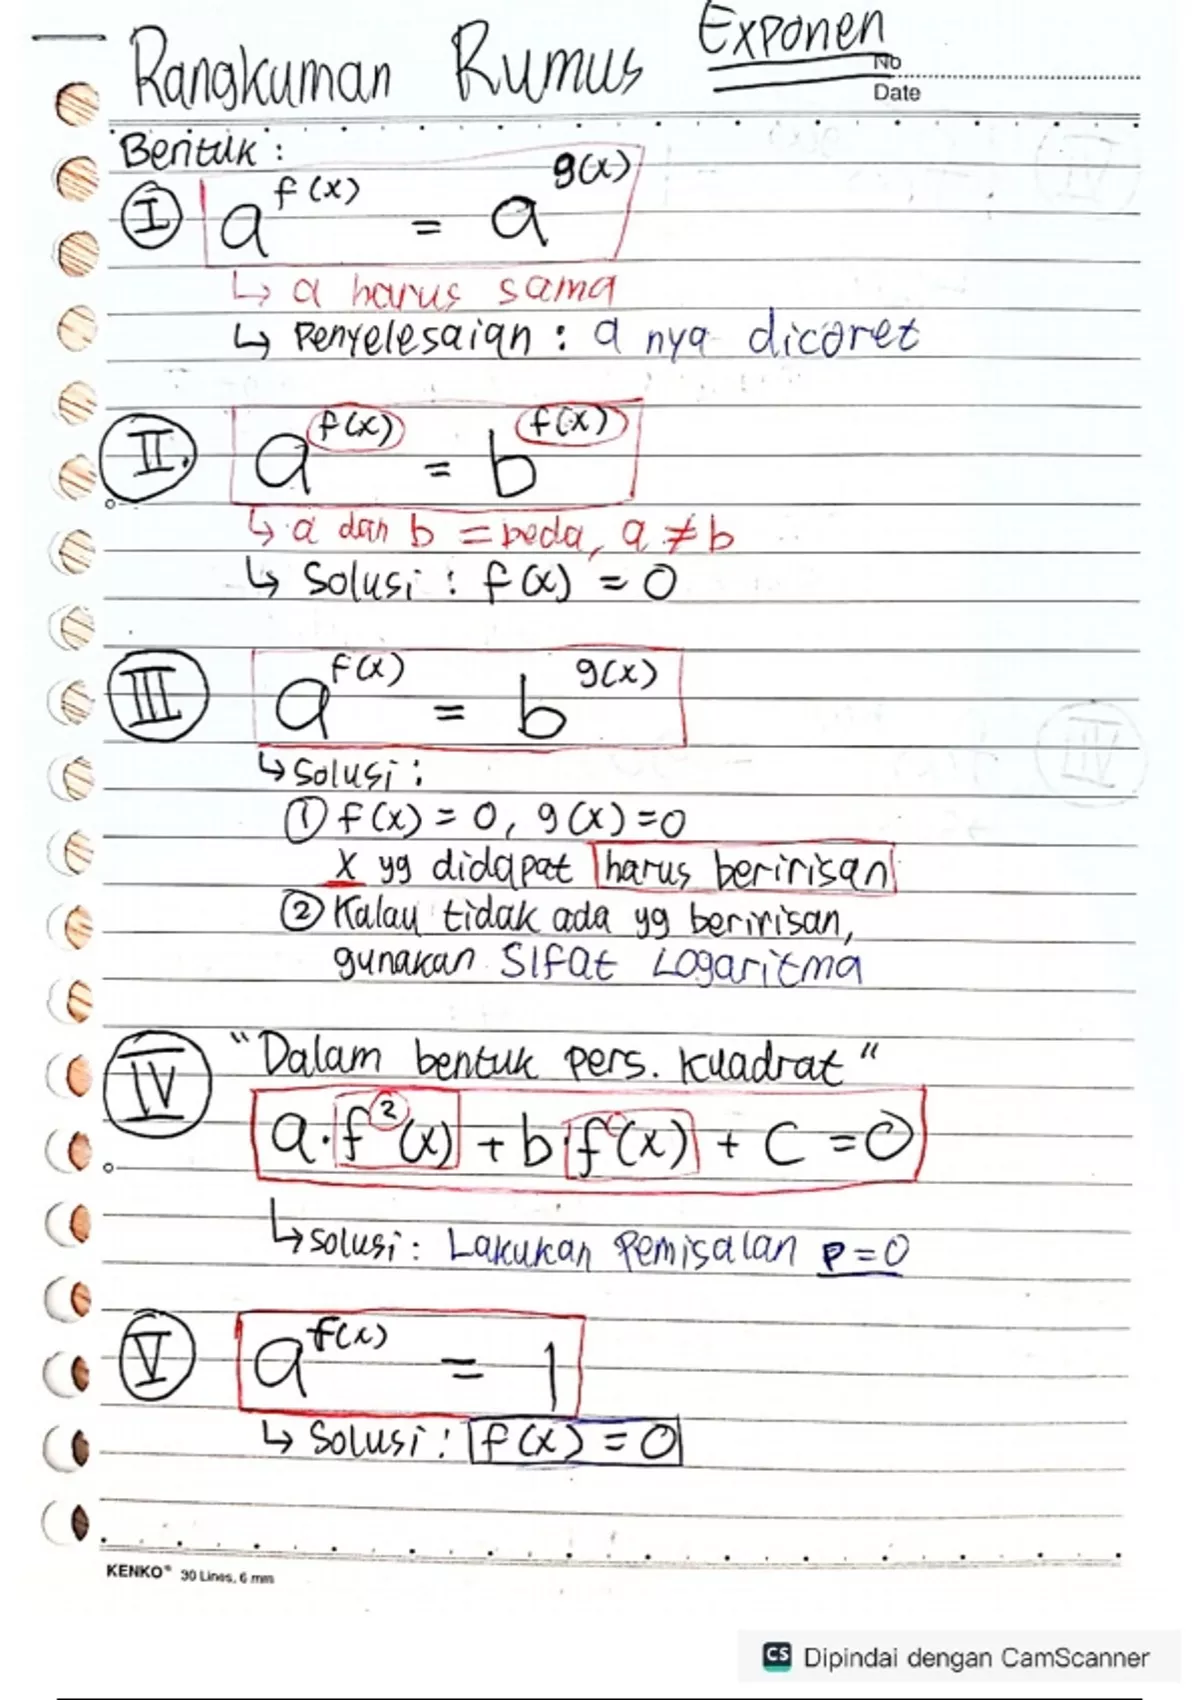 Rangkuman Rumus Exponen
No
Date
Bentuk :
I a^f(x) = a^g(x)
↳ a harus sama
↳ Penyelesaian : a nya dicoret
II. a^f(x) = b^f(x)
↳ a dan b = beda, a ≠ b
↳ Solusi : f(x) = 0
III a^f(x) = b^g(x)
↳ Solusi :
① f(x) = 0, g(x) = 0
x yg didapat harus beririsan
② Kalau tidak ada yg beririsan,
gunakan Sifat Logaritma
IV "Dalam bentuk pers. kuadrat"
a·f²(x) + b·f(x) + c = 0
↳ Solusi : Lakukan Pemisalan P = 0
V a^f(x) = 1
↳ Solusi : f(x) = 0
KENKO® 30 Lines, 6 mm
CS Dipindai dengan CamScanner